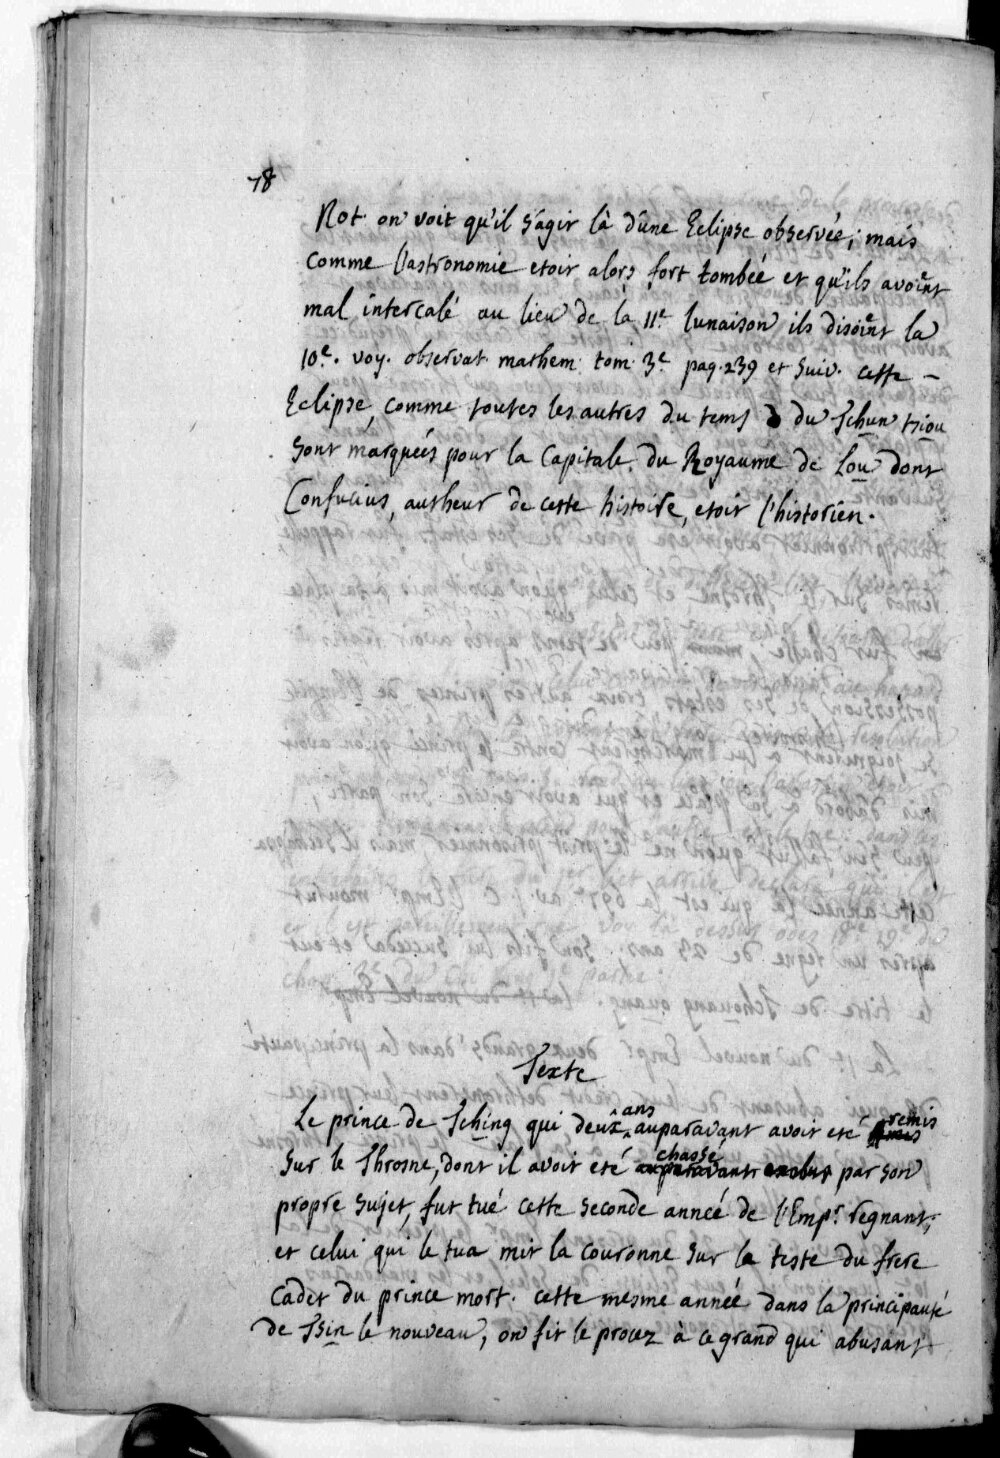 78
Not. on voit qu'il s'agit là d'une Eclipse observée; mais
comme l'astronomie etoit alors fort tombée et qu'ils avoient
mal intercalé au lieu de la 11.e lunaison ils disoient la
10.e. voy. observat. mathem. tom. 3.e pag. 239 et suiv. cette -
Eclipse, comme toutes les autres du tems du Tchun tsiou
sont marquées pour la Capitale du Royaume de Lou dont
Confucius, autheur de cette histoire, etoit l'historien.
Texte
Le prince de Tching qui deux ans auparavant avoit eté remis
sur le Throsne, dont il avoit eté chassé par son
propre sujet, fut tué cette seconde année de l'Emp.r regnant,
et celui qui le tua mit la couronne sur la teste du frere
cadet du prince mort. cette mesme année dans la principauté
de Tsin le nouveau, on fit le procez à ce grand qui abusant